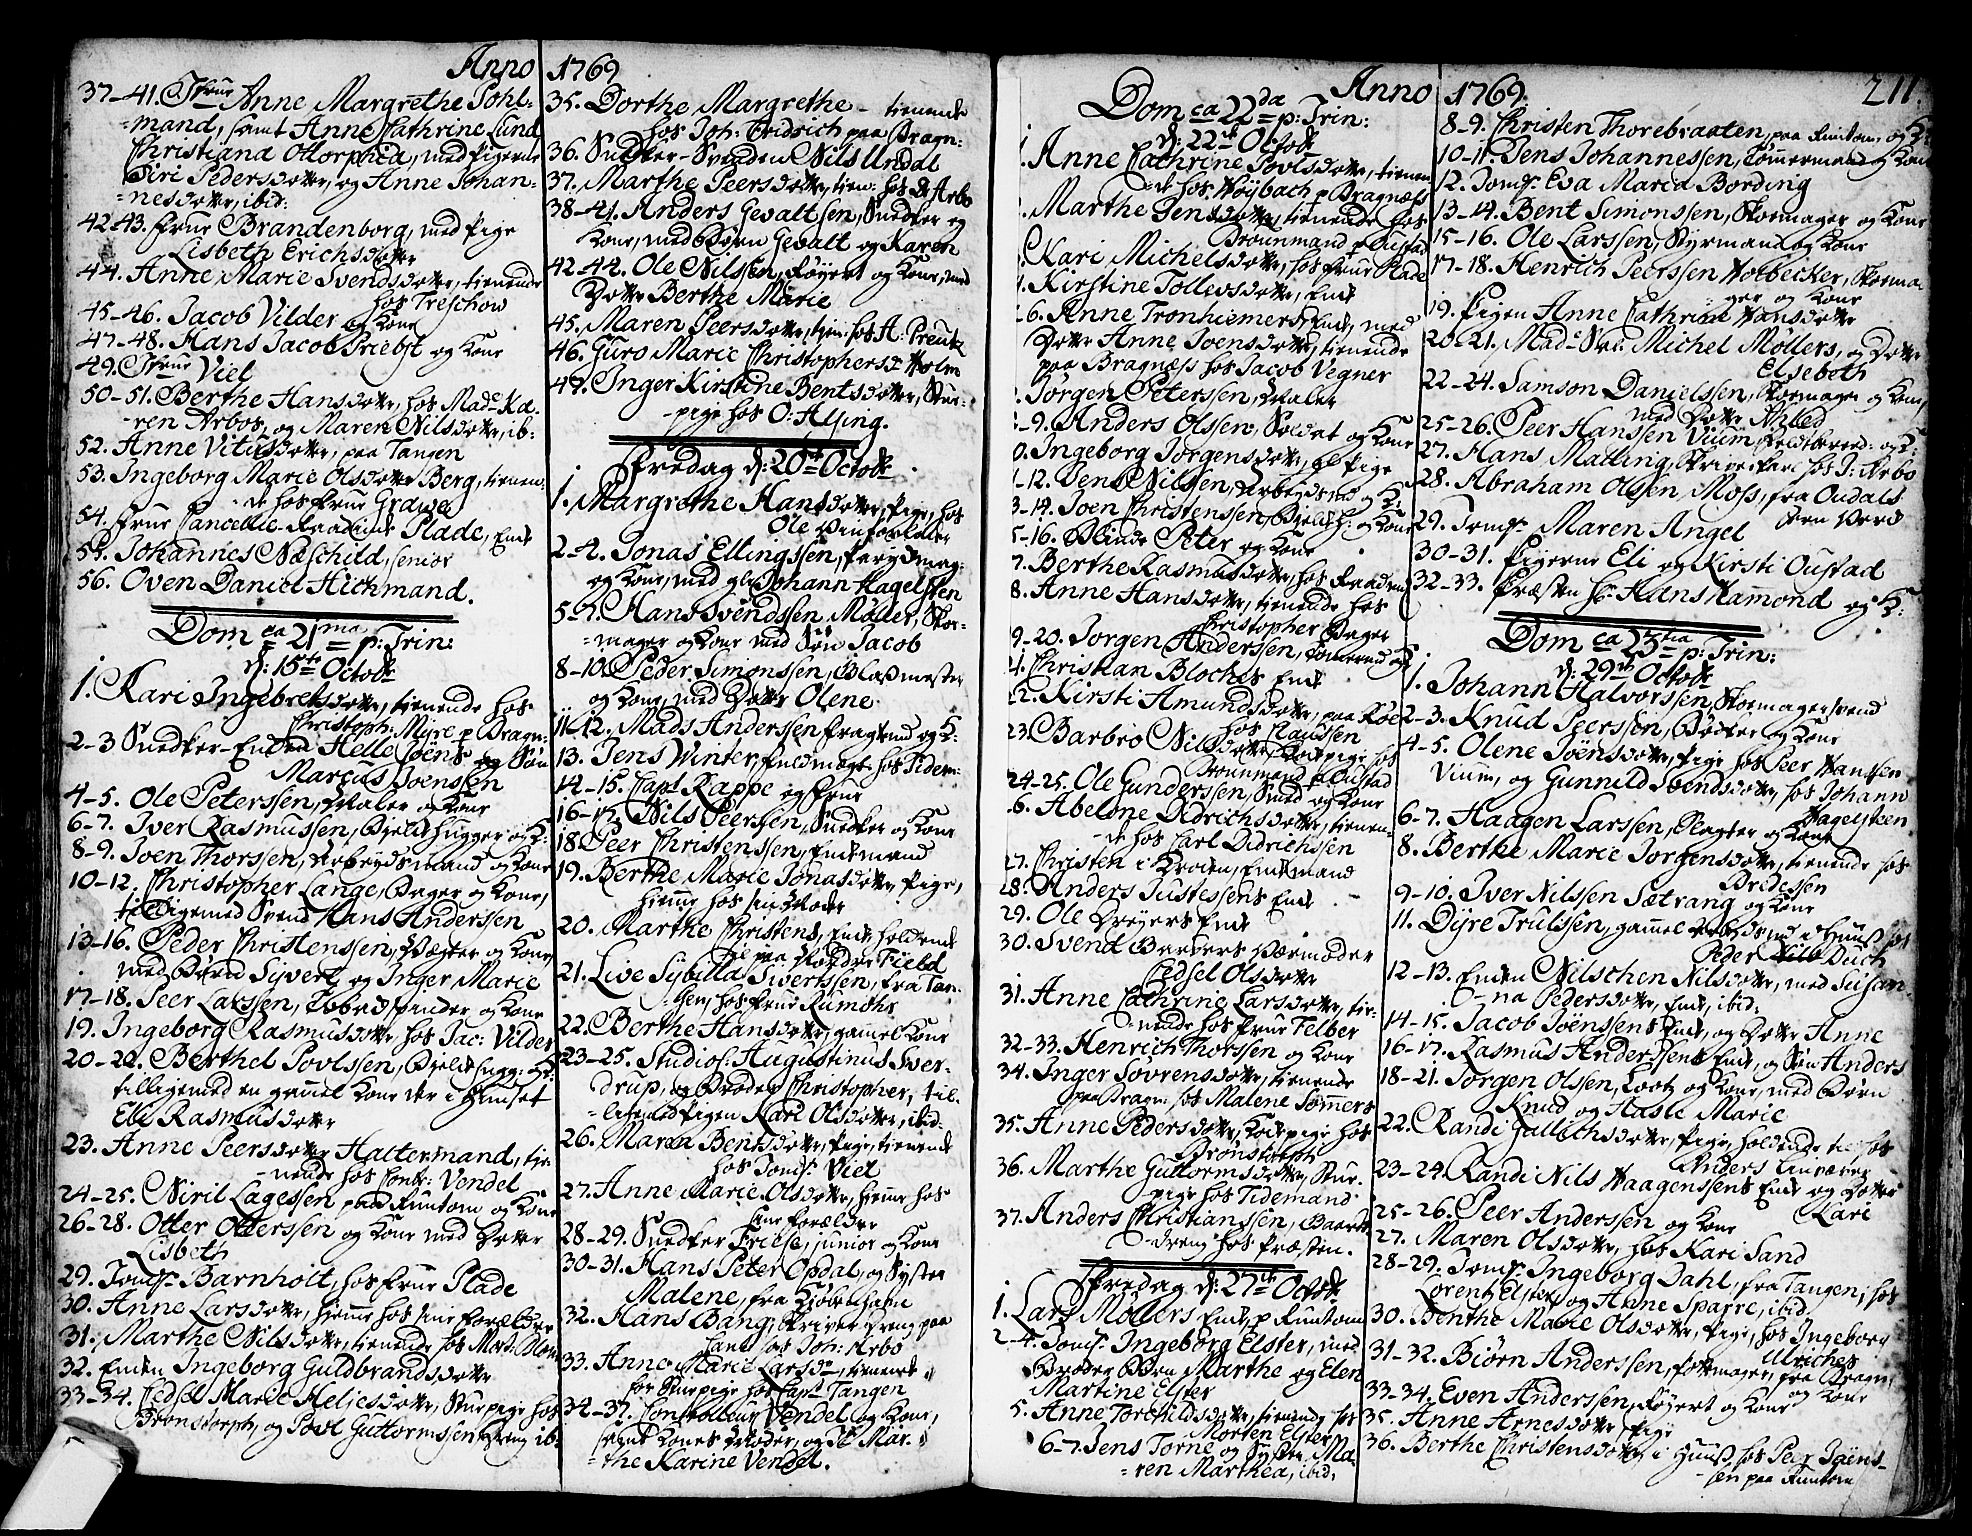 Anno 1769
37-41. Frue Anne Margrethe Pohl=
=mand, samt Anne Cathrine Lund
Christiana Ottorphea, med Pigerne
Siri Pedersdotter, og Anne Johan=
=nesdotter, ibid:
42-43. Frue Brandenborg, med Pige
Lisbeth Erichsdotter
44. Anne Marie Svendsdotter, tienende
hos Treschow
45-46. Jacob Vilder og Kone
47-48. Hans Jacob Priebst og Kone
49. Frue Viel
50-51. Berthe Hansdotter, hos Madme Ka=
-ren Arbos, og Maren Nilsdotter, ib:
52. Anne Vitusdotter, paa Tangen
53. Ingeborg Marie Olsdotter Berg, tienen=
-de hos Frue Grawer
54. Frue Cancellie-Raadinde Plade, Enke
55. Johannes Næschild, senior
56. Oven Daniel Hichmand.
Domca 21ma p: Trin:
d: 15te Octobr
1. Kari Ingebretsdotter, tienende hos
Christoph: Myre p Bragn:
2-3 Snedker-Enken Helle Joens og Søn
Marcus Joenssen
4-5. Ole Peterssen, Maler og Kone
6-7. Iver Rasmussen, Bielkehugger og K:
8-9. Joen Thorssen, Arbeydsmand og Kone
10-12. Christopher Lange, Bager og Kone,
tilligemed Svend Hans Anderssen
13-16. Peder Christenssen, Vægter og Kone
med Børn Syvert og Inger Marie
17-18. Peer Larssen, og Kone
19. Ingeborg Rasmusdotter hos Jac: Vilder
20-22. Berthel Povlssen, Bielkehugg: og K:
tilligemed en gamel Kone der i Huuset
Eli Rasmusdotter
23. Anne Peersdotter Haltermand, tie
-nende hos Contr: Vendel
24-25. Niril Lagessen paa Runtom og Kone
26-28. Otter Otterssen og Kone med Dotter
Lisbeth
29. Jomfr: Barnholt, hos Frue Plade
30. Anne Larsdotter, hiemme hos sine Forældre
31. Marthe Nilsdotter, tienende hos Mort: Blom
32. Enken Ingeborg Guldbrandsdotter
33-34. Cedsel Marie Heljesdotter, Stuepige hos
Brønstorph, og Povl Guttormssen Dreng ib:
35. Dorthe Margrethe - tienende
hos Joh: Fridrich paa Bragn:
36. Snedker-Svenden Nils Urdal
37. Marthe Peersdotter, tien: hos D: Arbo
38-41. Anders Gevaltsen, Snedker og
Kone, med Børn Gevalt og Karen
42-44. Ole Nilssen, Røyert og Kone, med
Dotter Berthe Marie
45. Maren Peersdotter, tien: hos A: Preutz
46. Guro Marie Christophersdr Holm
47. Inger Kirstine Bentsdotter, Stue=
-pige hos O: Alsing.
Fredag d: 20de Octobr
1. Margrethe Hansdotter, Pige, hos
Ole
2-4. Jonas Ellingssen, Parykmag:
og Kone, med gl: Johann Hagelsten
5-7. Hans Svendssen Møller, Skoe-
-mager og Kone med Søn Jacob
8-10. Peder Simonssen, Glasmester
og Kone, med Dotter Olene
11-12. Mads Anderssen Fragtmd og K:
13. Jens Winter, Fuldmægt: hos Tidem:
14-15. Capt Rappe og Kone
16-17. Nils Peerssen, Snedker og Kone
18. Peer Christenssen, Enkemand
19. Berthe Marie Jonasdotter, Pige,
hiemme hos sin Moder
20. Marthe Christens, Enke holdende
til paa
21. Live Sybilla Sivertssen, fra Tan-
-gen, hos Frue Ramohs
22. Berthe Hansdotter, gamel Kone
23-25. Studios: Augustinus Sver-
drup, og Broder Christopher, til-
-ligemed Pigen Kari Olsdotter, ibid:
26. Maren Bentsdotter, Pige, tienende
hos Jomfr: Viel
27. Anne Marie Olsdotter, hieme hos
sine Forældre
28-29. Snedker Friese, junior og Kone
30-31. Hans Peter Opdal, og Syster
Malene, fra Kiøbenhavn
32. Hans Bang, Skriver Dreng paa
hos Joh: Arbo
33. Anne Marie Larsdr, tienende
for Stuepige hos Capt Tangen
34-37. Controlleur Vendel og Kone,
samt Kones Moder, og Mar-
=the Karine Vendel.
Anno 1769. 211.
Domca 22da p: Trin:
d: 22de Octobr
1. Anne Cathrine Povlsdotter, tienen
-de hos Høybach p Bragnæss
Marthe Jensdotter, tienende hos
Brounmand p Oustad
Kari Michelsdotter, hos Frue Plade
Kirstine Tollevsdotter, Enke
6. Anne Tronhiemers Enke, med
Dotter Anne Joensdotter, tienende
paa Bragnæss hos Jacob Vegner
Jørgen Peterssen, Maler
-9. Anders Olssen, Soldat og Kone
Ingeborg Jørgensdotter, gl: Pige
-12. Jens Nilssen, Arbeydsmd og K:
-14. Joen Christenssen, Bielkeh: og Kone
5-16. Blinde Peter og Kone
7. Berthe Rasmusdotter, hos Raadm
8. Anne Hansdotter, tienende hos
Christopher Bager
9-20. Jørgen Anderssen, Tømermd og K:
Christian Blochs Enke
22. Kirsti Amundsdotter, paa
hos Claussen
23. Barbro Nilsdotter, Kockepige hos
Brounmand p Oustad
24-25. Ole Gunderssen, Smed og Kone
26. Abelone Didrichsdotter, tienen-
-de hos Carl Didrichssen
27. Christen i Kroken, Enkemand
28. Anders Justessens Enke
29. Ole Dreyers Enke
30. Svend Værmoder
Cedsel Olsdotter
31. Anne Cathrine Larsdotter, tie-
-nende hos Frue Felber
32-33. Henrich Thorssen og Kone
34. Inger Sovrensdotter, tienende
paa Bragn: hos Malene Tommers
35. Anne Pedersdotter, Kockepige hos
Brønstorph
36. Marthe Guttormsdotter, Stue-
pige hos Tidemand
37. Anders Christianssen,
dreng hos Præsten.
Fredag d: 27de Octobr
1. Lars Møllers Enke, p Runtom
2-4. Jomfr: Ingeborg Elster, med
Broder Børn Marthe og Elen
Martine Elster
5. Anne Torchildsdotter, tienende hos
Morten Elster
6-7. Jens Torne og Syster Ma-
-ren Marthea, ibid:
8-9. Christen Thorebraaten, paa Runtom, og K:
10-11. Jens Johannessen, Tømermand og Kone
12. Jomfr: Eva Maria Bording
13-14. Bent Simonssen, Skoemager og Kone
15-16. Ole Larssen, Styrmand og Kone
17-18. Henrich Peerssen Holbecker, Skoema-
-ger og Kone
19. Pigen Anne Cathrine Hansdotter
20-21. Made Sal: Michel Møllers, og Dotter
Elsebeth
22-24. Samson Danielssen, Skoemager og Kone,
med Dotter Ahled
25-26. Peer Hanssen Vium, og K:
27. Hans Malling, Skriverkarl hos J: Arbo
28. Abraham Olssen Moss, fra Oudals
Jern Verk
29. Jomfr: Maren Angel
30-31. Pigerne Eli og Kirsti Oustad
32-33. Præsten Hr: Hans Hammond og K:
Domca 23tia p: Trin:
d: 29de Octobr
1. Johann Halvorssen, Skoemagersvend
2-3. Knud Peerssen, Bødker og Kone
4-5. Olene Joensdotter, Pige hos Peer Hanssen
Vium, og Gunnild Svendsdotter, hos Johann
Hagelsteen
6-7. Haagen Larssen, Slagter og Kone
8. Berthe Marie Jørgensdotter, tienende hos
Bredessen
9-10. Iver Nilssen Sætrang og Kone
11. Dyre Trulssen, gammel Arbeydsmd i Huus hos
Peder Duch
12-13. Enken Nilschen Nilsdotter, med Susan-
-na Pedersdotter, Enke, ibid:
14-15. Jacob Joenssens Enke, og Dotter Anne
16-17. Rasmus Anderssens Enke, og Søn Anders
18-21. Jørgen Olssen, Lootz og Kone, med Børn
Knud og Hasle Marie
22. Randi Gulichsdotter, Pige, holdende til hos
Anders
23-24. Randi Nils Haagenssens Enke og Dotter
Kari
25-26. Peer Anderssen og Kone
27. Maren Olsdotter, hos Kari Sand
28-29. Jomfr: Ingeborg Dahl, fra Tangen, hos
Lorentz Elster, og Anne Sparre, ibid.
30. Benthe Marie Olsdotter, Pige, hos Ingeborg
Ulriches
31-32. Biørn Anderssen, Formager, fra Bragn:
og Kone
33-34. Even Anderssen, Røyert og Kone
35. Anne Arnesdotter, Pige
36. Berthe Christensdotter, i Huus hos Peer Joens-
-sen paa Runtom